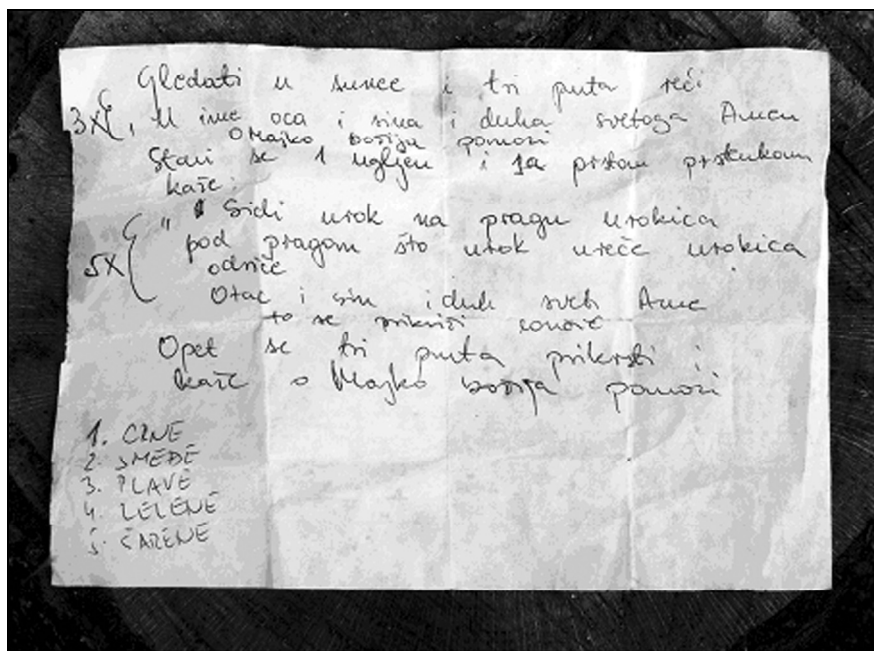 Gledati u sunce i tri puta reći
3x{ „ U ime oca i sina i duha svetoga Amen
O Majko božija pomozi
Stavi se 1 ugljen i sa prstom prstenkom
kaže:
5x{ " Sidi urok na pragu urokica
pod pragom što urok ureče urokica
odriče
Otac i sin i duh sveti Ame
to se prikriži
Opet se tri puta prikrsti i
kaže o Majko božija pomozi
1. CRNE
2. SMEĐE
3. PLAVE
4. ZELENE
5. ŠARENE